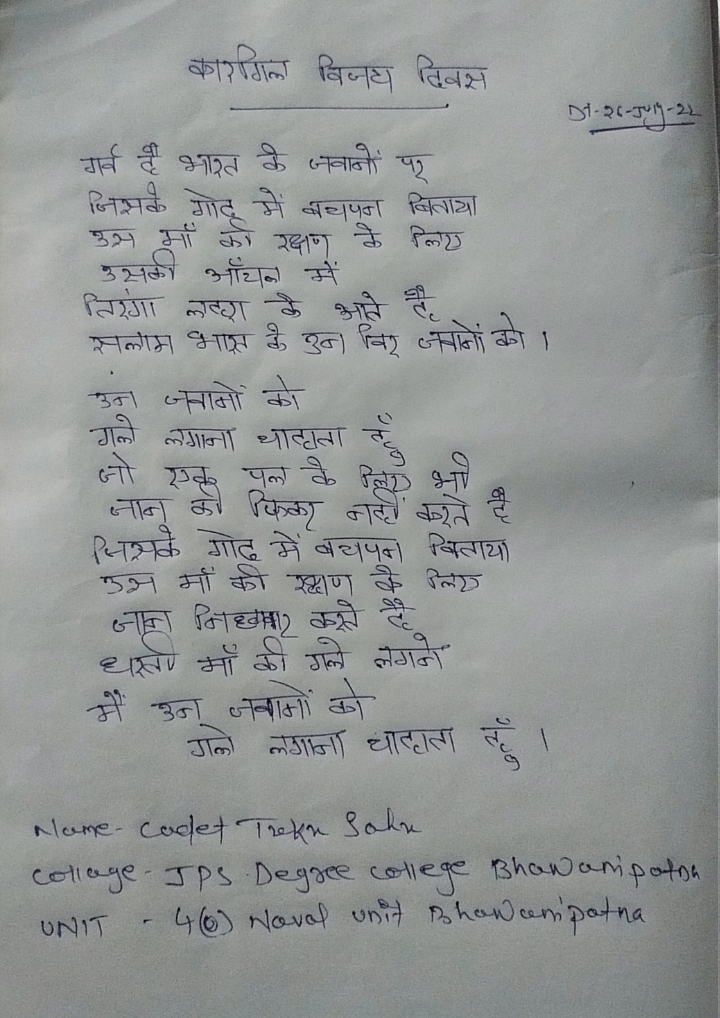 कारगिल विजय दिवस
Dt-26-July-22
गर्व है भारत के जवानों पर
जिसके गोद में बचपन बिताया
उस माँ की रक्षण के लिए
उसकी आँचल में
तिरंगा लहरा के आते हैं
सलाम भारत के उन विर जवानों को ।
उन जवानों को
गले लगाना चाहाता हूँ
जो एक पल के लिए भी
जान की फिकर नहीं करते है
जिसके गोद में बचपन बिताया
उस माँ की रक्षण के लिए
जान करते है
धरती माँ की गले लगने
मैं उन जवानों को
गले लगाना चाहाता हूँ ।
Name- Cadet Sahu
College- JPS Degree College Bhawanipatna
UNIT - 4(O) Naval unit Bhawanipatna